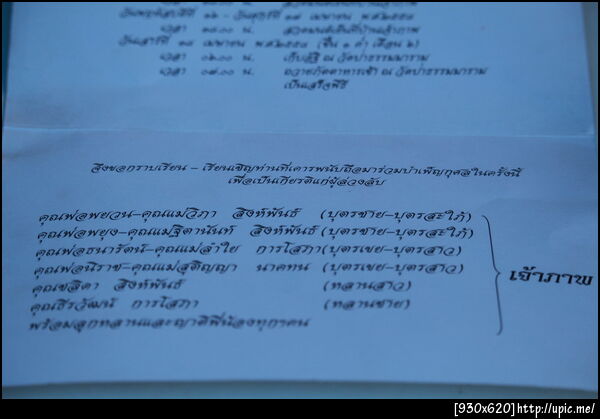 วันพฤหัสบดีที่ ๑๖ - วันศุกร์ที่ ๑๗ เมษายน พ.ศ.๒๕๕๘
เวลา ๑๙.๐๐ น. สวดมนต์เย็นที่บ้านเจ้าภาพ
วันเสาร์ที่ ๑๘ เมษายน พ.ศ.๒๕๕๘ (ขึ้น ๑ ค่ำ เดือน ๖)
เวลา ๐๖.๐๐ น. เก็บอัฐิ ณ วัดป่าธรรมมาราม
เวลา ๐๗.๐๐ น. ถวายภัตตาหารเช้า ณ วัดป่าธรรมมาราม
เป็นเสร็จพิธี
จึงขอกราบเรียน - เรียนเชิญท่านที่เคารพนับถือมาร่วมบำเพ็ญกุศลในครั้งนี้
เพื่อเป็นเกียรติแก่ผู้ล่วงลับ
คุณพ่อพยวน-คุณแม่วิภา สิงห์พันธ์ (บุตรชาย-บุตรสะใภ้)
คุณพ่อพยุง-คุณแม่ฐิตานันท์ สิงห์พันธ์ (บุตรชาย-บุตรสะใภ้)
คุณพ่อธนารัตน์-คุณแม่ลำใย การโสภา (บุตรเขย-บุตรสาว)
คุณพ่อนิราช-คุณแม่สุติญญา นาคทน (บุตรเขย-บุตรสาว)
คุณชลิดา สิงห์พันธ์ (หลานสาว)
คุณธีรวัฒน์ การโสภา (หลานชาย)
พร้อมลูกหลานและญาติพี่น้องทุกๆคน
เจ้าภาพ
[930x620]http://upic.me/